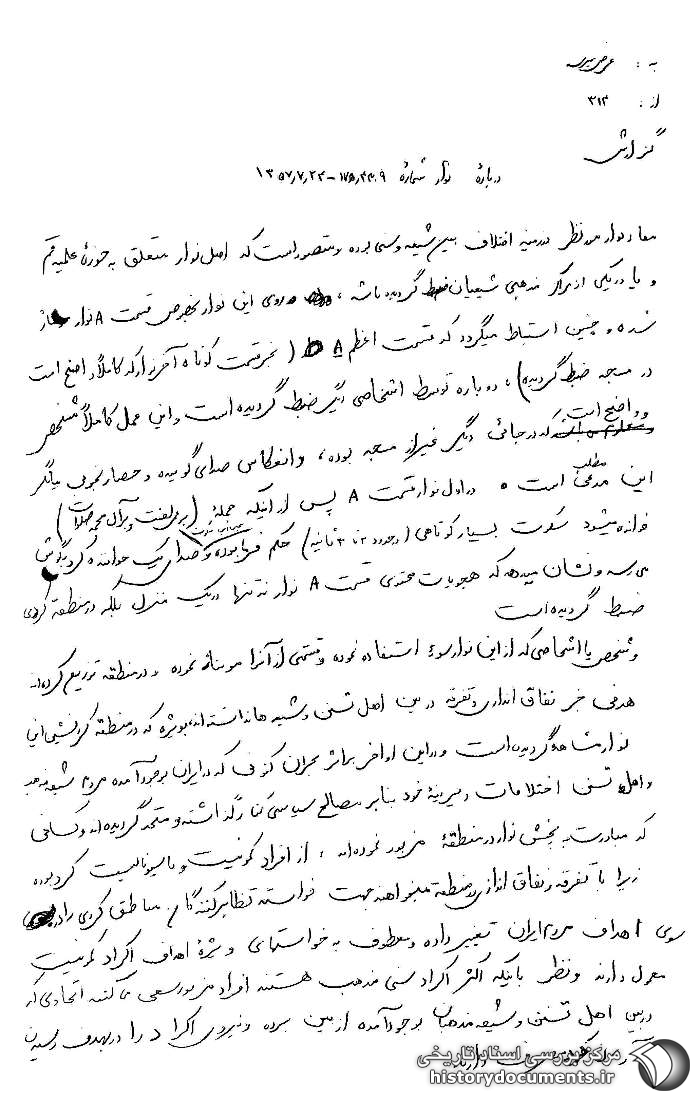 به : عرض میرسد
از : ۳۱۲
گزارش
درباره نوار شماره ۱۷۵۳۴۰۹ - ۱۳۵۷٫۷٫۲۳
مفاد نوار مورد نظر در زمینه اختلاف بین شیعه و سنی بوده و متصور است که اصل نوار متعلق به حوزه علمیه قم
و یا در یکی از مراکز مذهبی شیعیان ضبط گردیده باشد ، روی این نوار بخصوص قسمت A نوار
شده و چنین استنباط میگردد که قسمت اعظم A ( بجز قسمت کوتاه آخر نوار که کاملاً واضح است
در مسجد ضبط گردیده) ، دوباره توسط اشخاصی دیگر ضبط گردیده است و این عمل کاملاً مشخص
و واضح است که در جائی دیگر غیر از مسجد بوده ، و انعکاس صدای گوینده و حضار بخوبی بیانگر
این مطلب است . در اول نوار قسمت A پس از اینکه جمله (بر عمر لعنت و بر آل محمد صلوات)
خوانده میشود سکوت بسیار کوتاهی (در حدود ۲ تا ۳ ثانیه) حکم فرما بوده و صدای یک خواننده کرد بگوش
می رسد و نشان میدهد که هجویات محتوی قسمت A نوار نه تنها در یک منزل بلکه در منطقه کردی
ضبط گردیده است
و شخص یا اشخاصی که از این نوار سوء استفاده نموده و قسمتی از آنرا مونتاژ نموده و در منطقه توزیع کرده‌اند
هدفی جز نفاق اندازی و تفرقه در بین اهل تسنن و شیعه ها نداشته اند، بویژه که در منطقه کردنشین این
نوار مشاهده گردیده است و در این اواخر براثر بحران کنونی که در ایران بوجود آمده مردم شیعه مذهب
و اهل تسنن اختلافات دیرینه خود بنابر مصالح سیاسی کنار گذاشته و متحد گردیده اند و کسانی
که مبادرت به پخش نوار در منطقه مزبور نموده‌اند ، از افراد کمونیست و ناسیونالیست کرد بوده
زیرا با تفرقه و نفاق اندازی در منطقه میخواهند جهت خواسته تظاهرکنندگان مناطق کردی را از
سوی اهداف مردم ایران تغییر داده و معطوف به خواستهای ویژه اهداف اکراد کمونیست
معمول دارند و نظر باینکه اکثر اکراد سنی مذهب هستند افراد مزبور سعی می کنند اتحادی که
در بین اهل تسنن و شیعه مذهبان بوجود آمده از بین برده و نیروی اکراد را در هدف رسیدن
مرکز بررسی اسناد تاریخی
historydocuments.ir